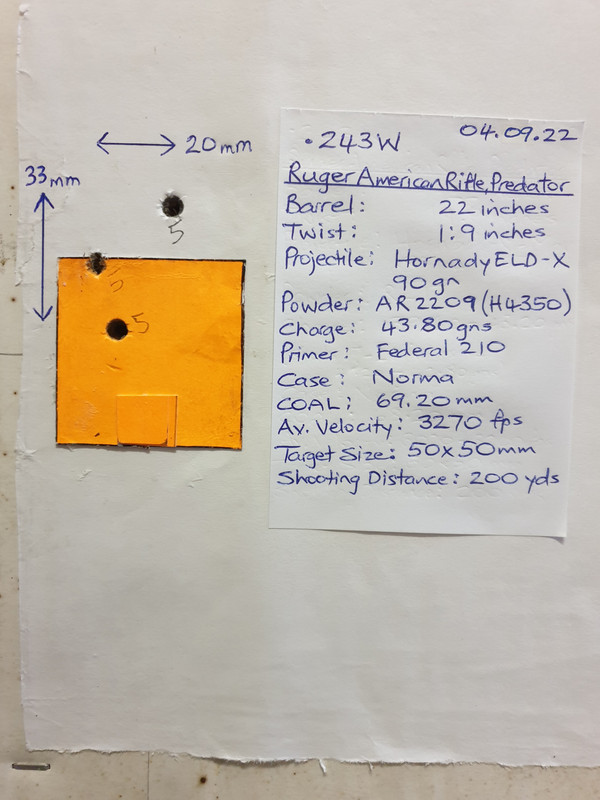 20mm
33mm
5
5
5
.243W
04.09.22
Ruger American Rifle, Predator
Barrel: 22 inches
Twist: 1:9 inches
Projectile: Hornady ELD-X
90gn
Powder: AR2209 (H4350)
Charge: 43.80gns
Primer: Federal 210
Case: Norma
COAL: 69.20mm
Av. Velocity: 3270 fps
Target Size: 50x50mm
Shooting Distance: 200 yds